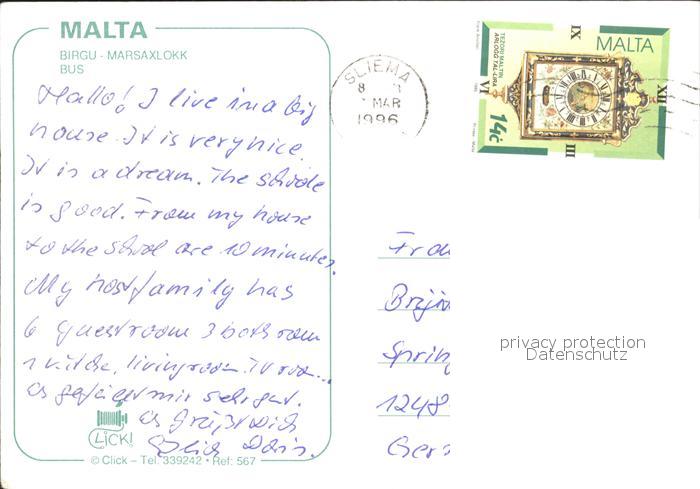 MALTA
BIRGU - MARSAXLOKK
BUS
Hallo! I live in a big
house. It is very nice.
It is a dream. The
is good. From my house
to the are 10 minutes.
My hostfamily has
6 guestroom 3 bathroom
1 livingroom. TV room...
Es gefällt mir sehr gut.
Es grüßt Dich
Doris.
CLICK!
© Click – Tel: 339242 • Ref: 567
SLIEMA
8
MAR
1996
TEZORI MALTIN
ARLOGG TAL-LIRA
MALTA
14c
IX
XII
VI
III
Frau
Brigi
Spring
1248
Ger
privacy protection
Datenschutz